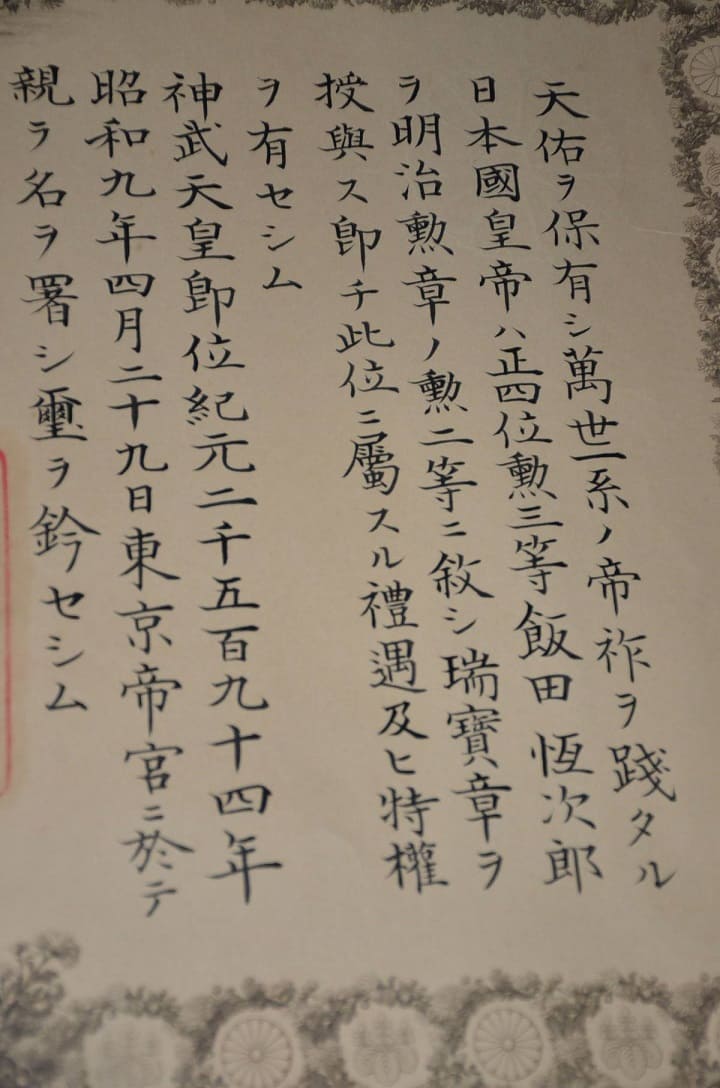 天佑ヲ保有シ萬世一系ノ帝祚ヲ踐タル
日本國皇帝ハ正四位勲三等飯田恆次郎
ヲ明治勲章ノ勲二等ニ敘シ瑞寶章ヲ
授與ス卽チ此位ニ屬スル禮遇及ヒ特權
ヲ有セシム
神武天皇卽位紀元二千五百九十四年
昭和九年四月二十九日東京帝宮ニ於テ
親ラ名ヲ署シ璽ヲ鈐セシム